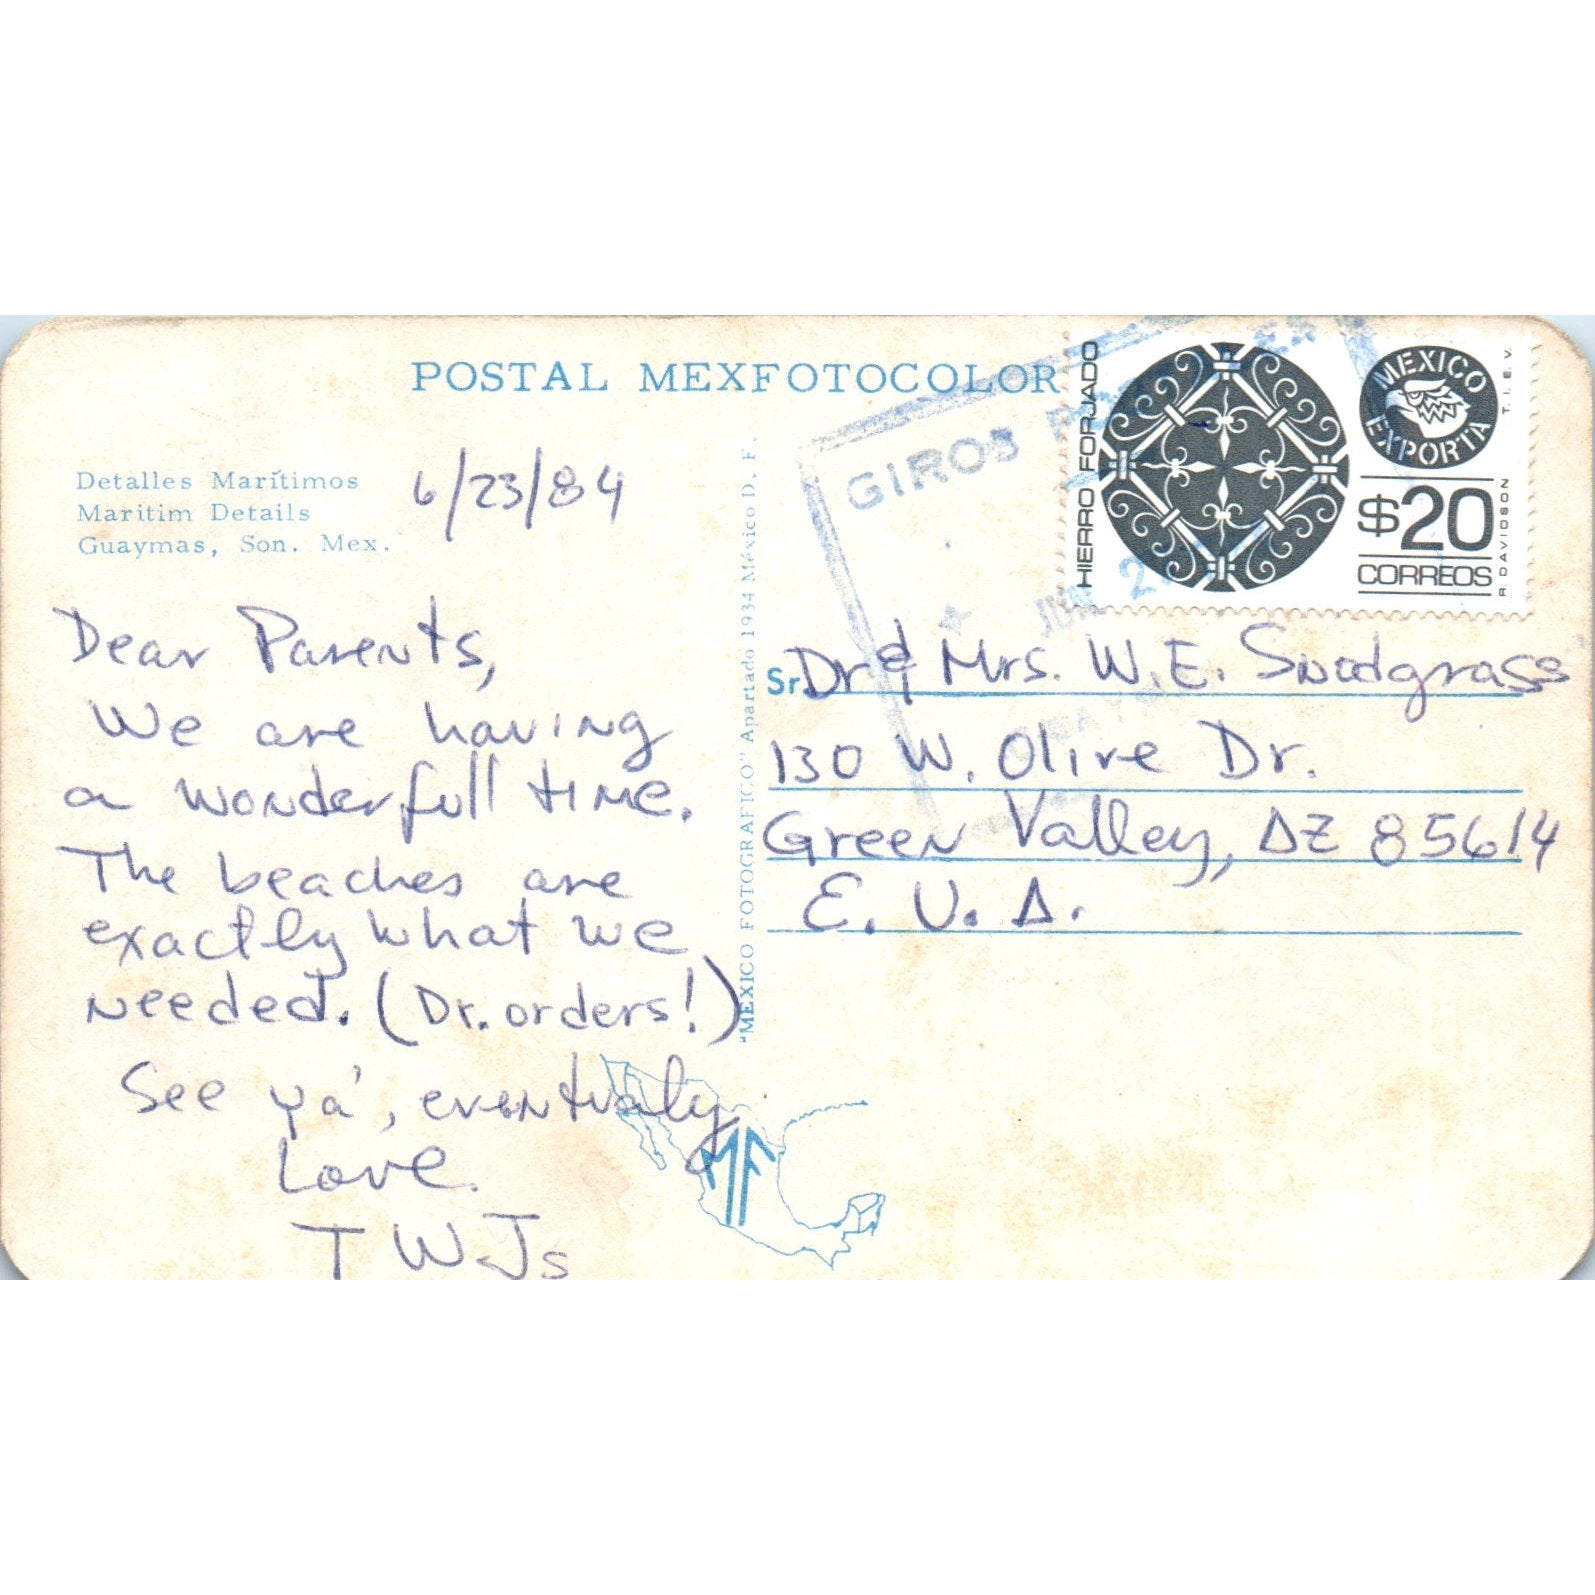 POSTAL MEXFOTOCOLOR
Detalles Marítimos
Maritim Details
Guaymas, Son. Mex.
6/23/84
Dear Parents,
We are having
a wonderfull time.
The beaches are
exactly what we
needed. (Dr. orders!)
See ya', eventualy
Love.
T W-Js
"MEXICO FOTOGRAFICO" Apartado 1934 México D. F.
MF
GIROS
JUN 2
HIERRO FORJADO
MEXICO EXPORTA
T.I.E.V.
$20
CORREOS
R. DAVIDSON
Sr. Dr & Mrs. W.E. Snodgrass
130 W. Olive Dr.
Green Valley, AZ 85614
E. U. A.